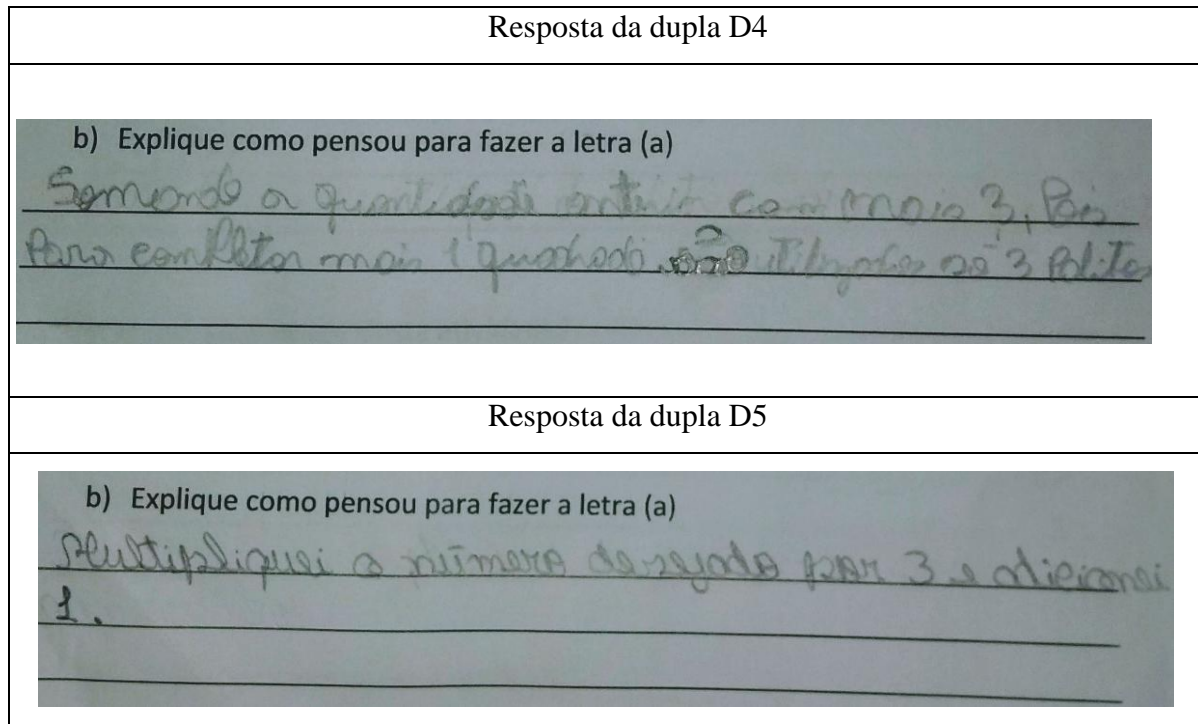 Resposta da dupla D4
b) Explique como pensou para fazer a letra (a)
Somando a quantidade com mais 3, Pois
Para completar mais 1 quadrado são utilizados só 3 Palitos
Resposta da dupla D5
b) Explique como pensou para fazer a letra (a)
Multipliquei o número desejado por 3 e adicionei
1.